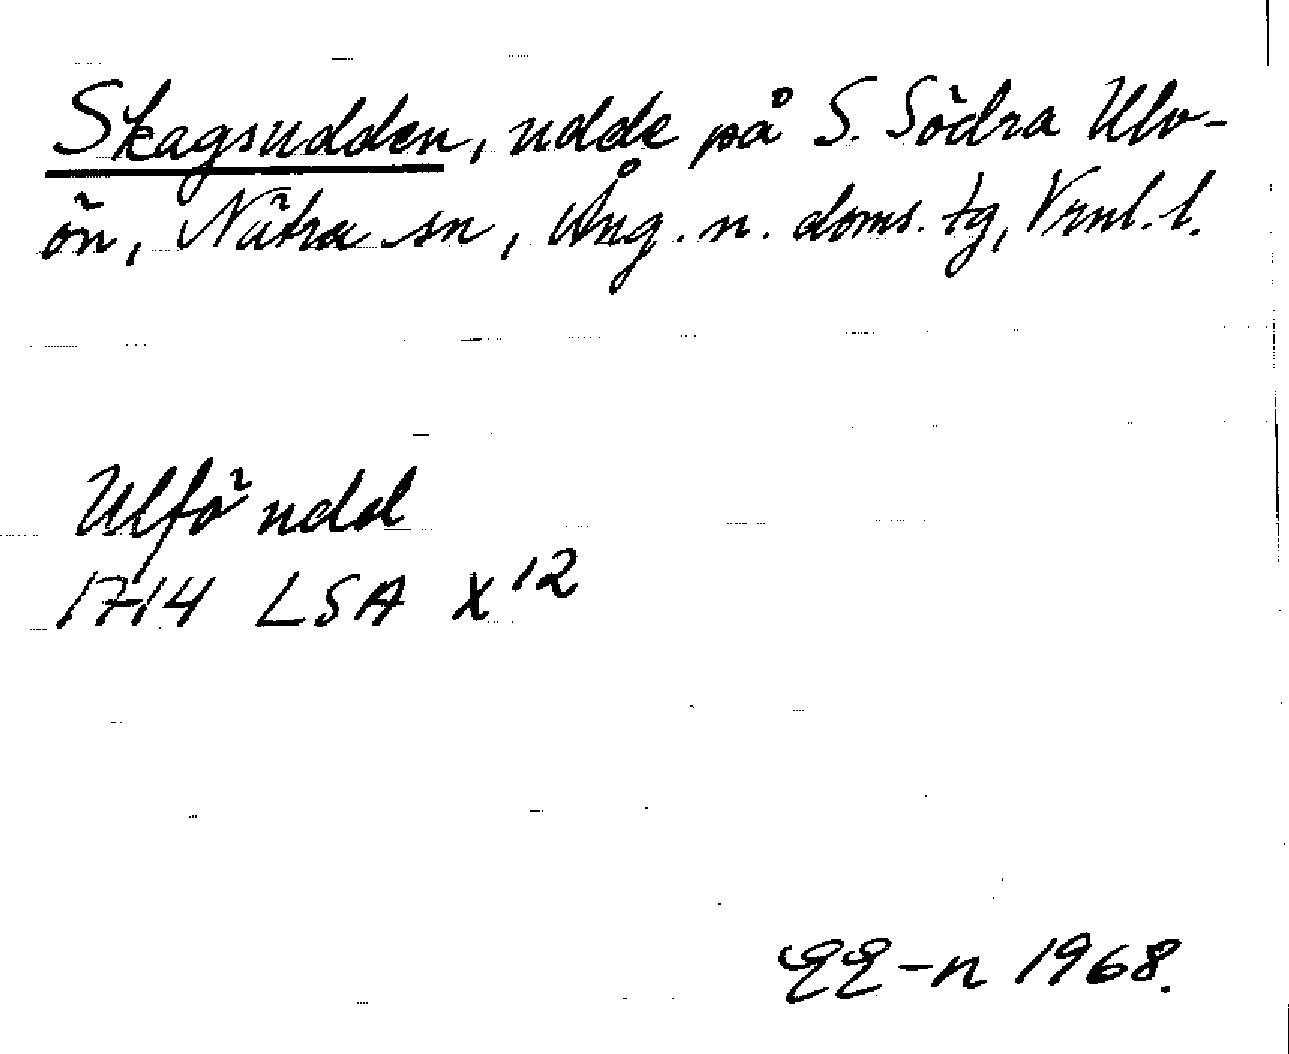 Skagsudden, udde på S. Södra Ulv-
ön, Nätra sn, Ång. n. doms. tg, Vrnl. l.
Ulfö udd
1714 LSA X 12
EE-n 1968.